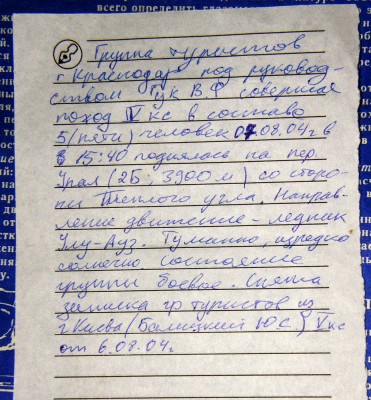 Группа туристов
г Краснодар под руковод-
ством Гук В Ф совершая
поход V кс в составе
5 (пяти) человек 07.08.04г в
в 15:40 поднялась на пер.
Урал (2Б; 3900 м) со сторо-
ны Тёплого угла. Направ-
ление движение - ледник
Улу-Ауз. Туманно, изредка
солнечно состояние
группы боевое. Снята
записка гр туристов из
г Киева (Балицкий Ю.С.) V кс
от 6.08.04г